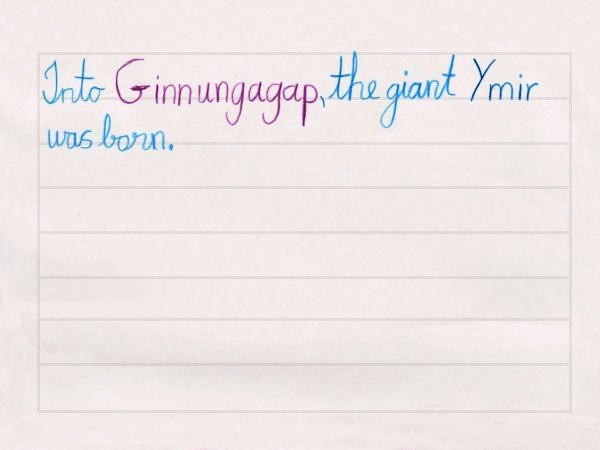 Into Ginnungagap, the giant Ymir
was born.